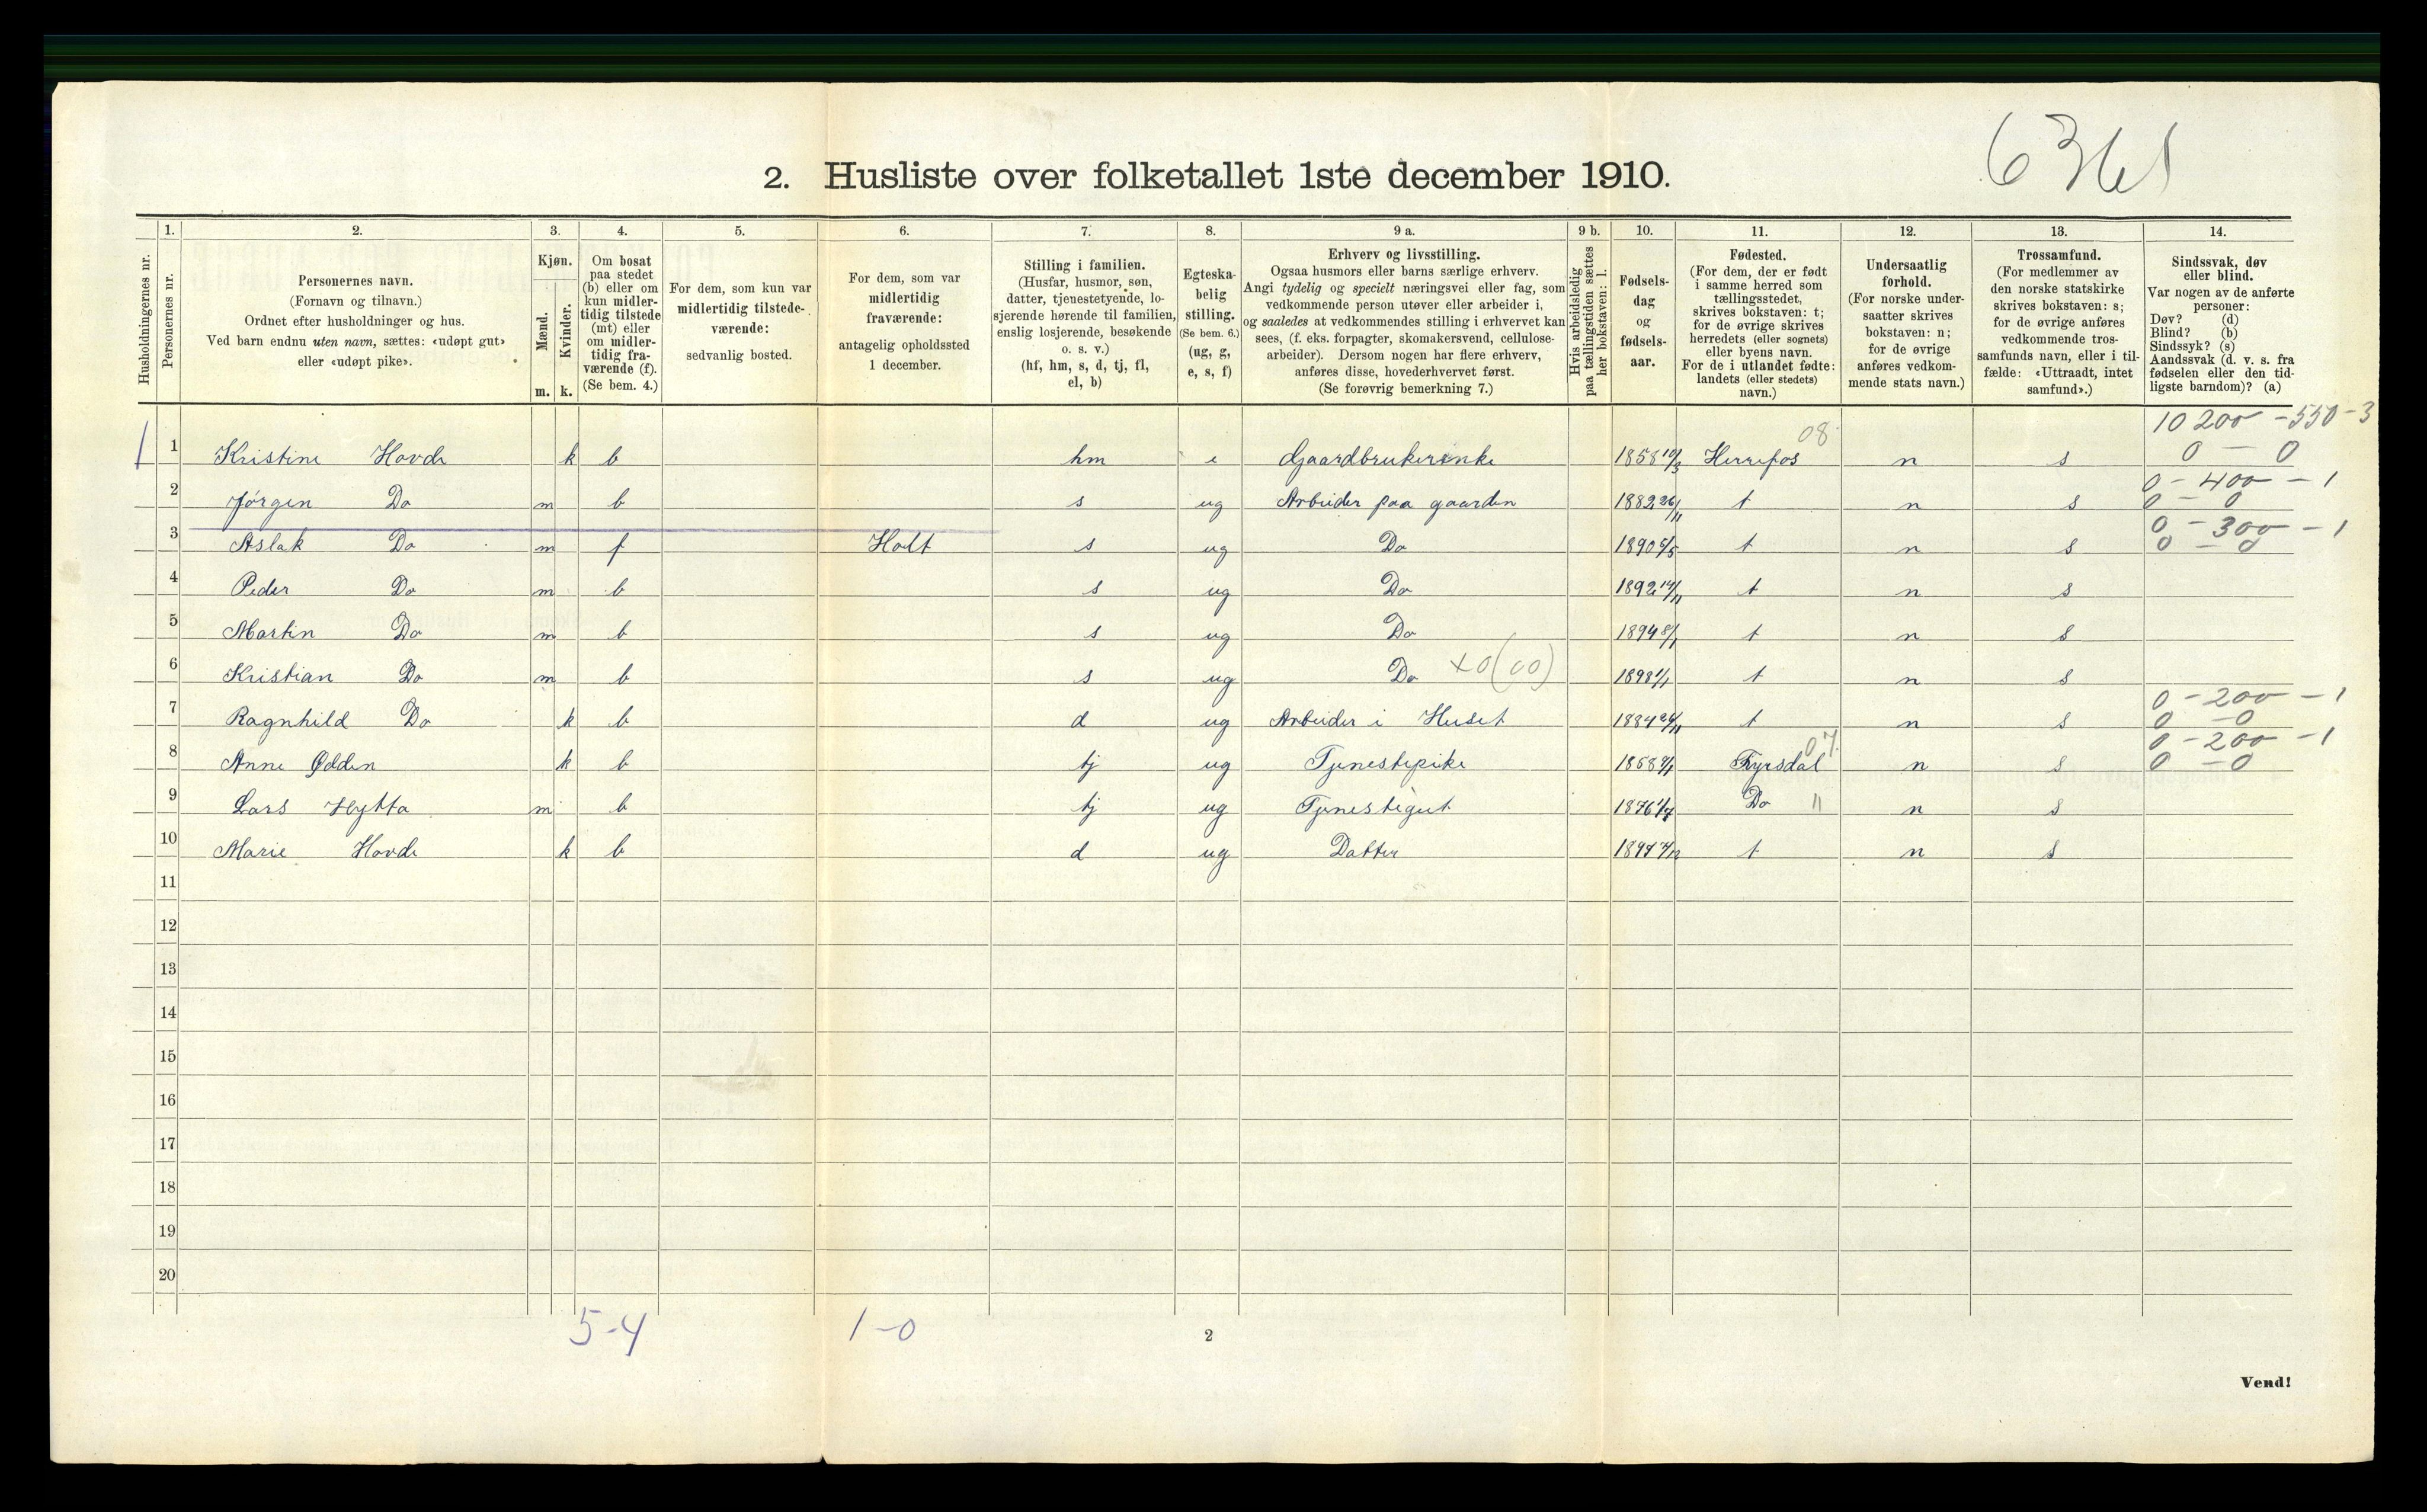 6361
2. Husliste over folketallet 1ste december 1910.
Husholdningernes nr.
1. Personernes nr.
2. Personernes navn.
(Fornavn og tilnavn.)
Ordnet efter husholdninger og hus.
Ved barn endnu uten navn, sættes: «udøpt gut»
eller «udøpt pike».
3. Kjøn.
Mænd. Kvinder.
m. k.
4. Om bosat
paa stedet
(b) eller om
kun midler-
tidig tilstede
(mt) eller
om midler-
tidig fra-
værende (f).
(Se bem. 4.)
5. For dem, som kun var
midlertidig tilstede-
værende:
sedvanlig bosted.
6. For dem, som var
midlertidig
fraværende:
antagelig opholdssted
1 december.
7. Stilling i familien.
(Husfar, husmor, søn,
datter, tjenestetyende, lo-
sjerende hørende til familien,
enslig losjerende, besøkende
o. s. v.)
(hf, hm, s, d, tj, fl,
el, b)
8. Egteska-
belig
stilling.
(Se bem. 6.)
(ug, g,
e, s, f)
9 a. Erhverv og livsstilling.
Ogsaa husmors eller barns særlige erhverv.
Angi tydelig og specielt næringsvei eller fag, som
vedkommende person utøver eller arbeider i,
og saaledes at vedkommendes stilling i erhvervet kan
sees, (f. eks. forpagter, skomakersvend, cellulose-
arbeider). Dersom nogen har flere erhverv,
anføres disse, hovederhvervet først.
(Se forøvrig bemerkning 7.)
9 b. Hvis arbeidsledig
paa tællingstiden sættes
her bokstaven: l.
10. Fødsels-
dag
og
fødsels-
aar.
11. Fødested.
(For dem, der er født
i samme herred som
tællingsstedet,
skrives bokstaven: t;
for de øvrige skrives
herredets (eller sognets)
eller byens navn.
For de i utlandet fødte:
landets (eller stedets)
navn.)
12. Undersaatlig
forhold.
(For norske under-
saatter skrives
bokstaven: n;
for de øvrige
anføres vedkom-
mende stats navn.)
13. Trossamfund.
(For medlemmer av
den norske statskirke
skrives bokstaven: s;
for de øvrige anføres
vedkommende tros-
samfunds navn, eller i til-
fælde: «Uttraadt, intet
samfund».)
14. Sindssvak, døv
eller blind.
Var nogen av de anførte
personer:
Døv? (d)
Blind? (b)
Sindssyk? (s)
Aandssvak (d. v. s. fra
fødselen eller den tid-
ligste barndom)? (a)
10200 - 550 - 3
08
1 1 Kristine Hovde k b hm e Gaardbrukerenke 1858 10/3 Herrefos n s 0 - 0
0 - 400 - 1
2 Jørgen Do m b s ug Arbeider paa gaarden 1882 26/11 t n s 0 - 0
0 - 300 - 1
3 Aslak Do m f Holt s ug Do 1890 5/5 t n s 0 - 0
4 Peder Do m b s ug Do 1892 14/11 t n s
5 Martin Do m b s ug Do 1894 8/1 t n s
6 Kristian Do m b s ug Do x0(00) 1898 1/1 t n s
0 - 200 - 1
7 Ragnhild Do k b d ug Arbeider i Huset 1884 24/11 t n s 0 - 0
07. 0 - 200 - 1
8 Anne Ødden k b tj ug Tjenestepike 1858 9/1 Fyrsdal n s 0 - 0
9 Lars Hytta m b tj ug Tjenestegut 1876 1/7 Do " n s
10 Marie Hovde k b d ug Datter 1897 7/12 t n s
11
12
13
14
15
16
17
18
19
20
5-4 1-0
2
Vend!